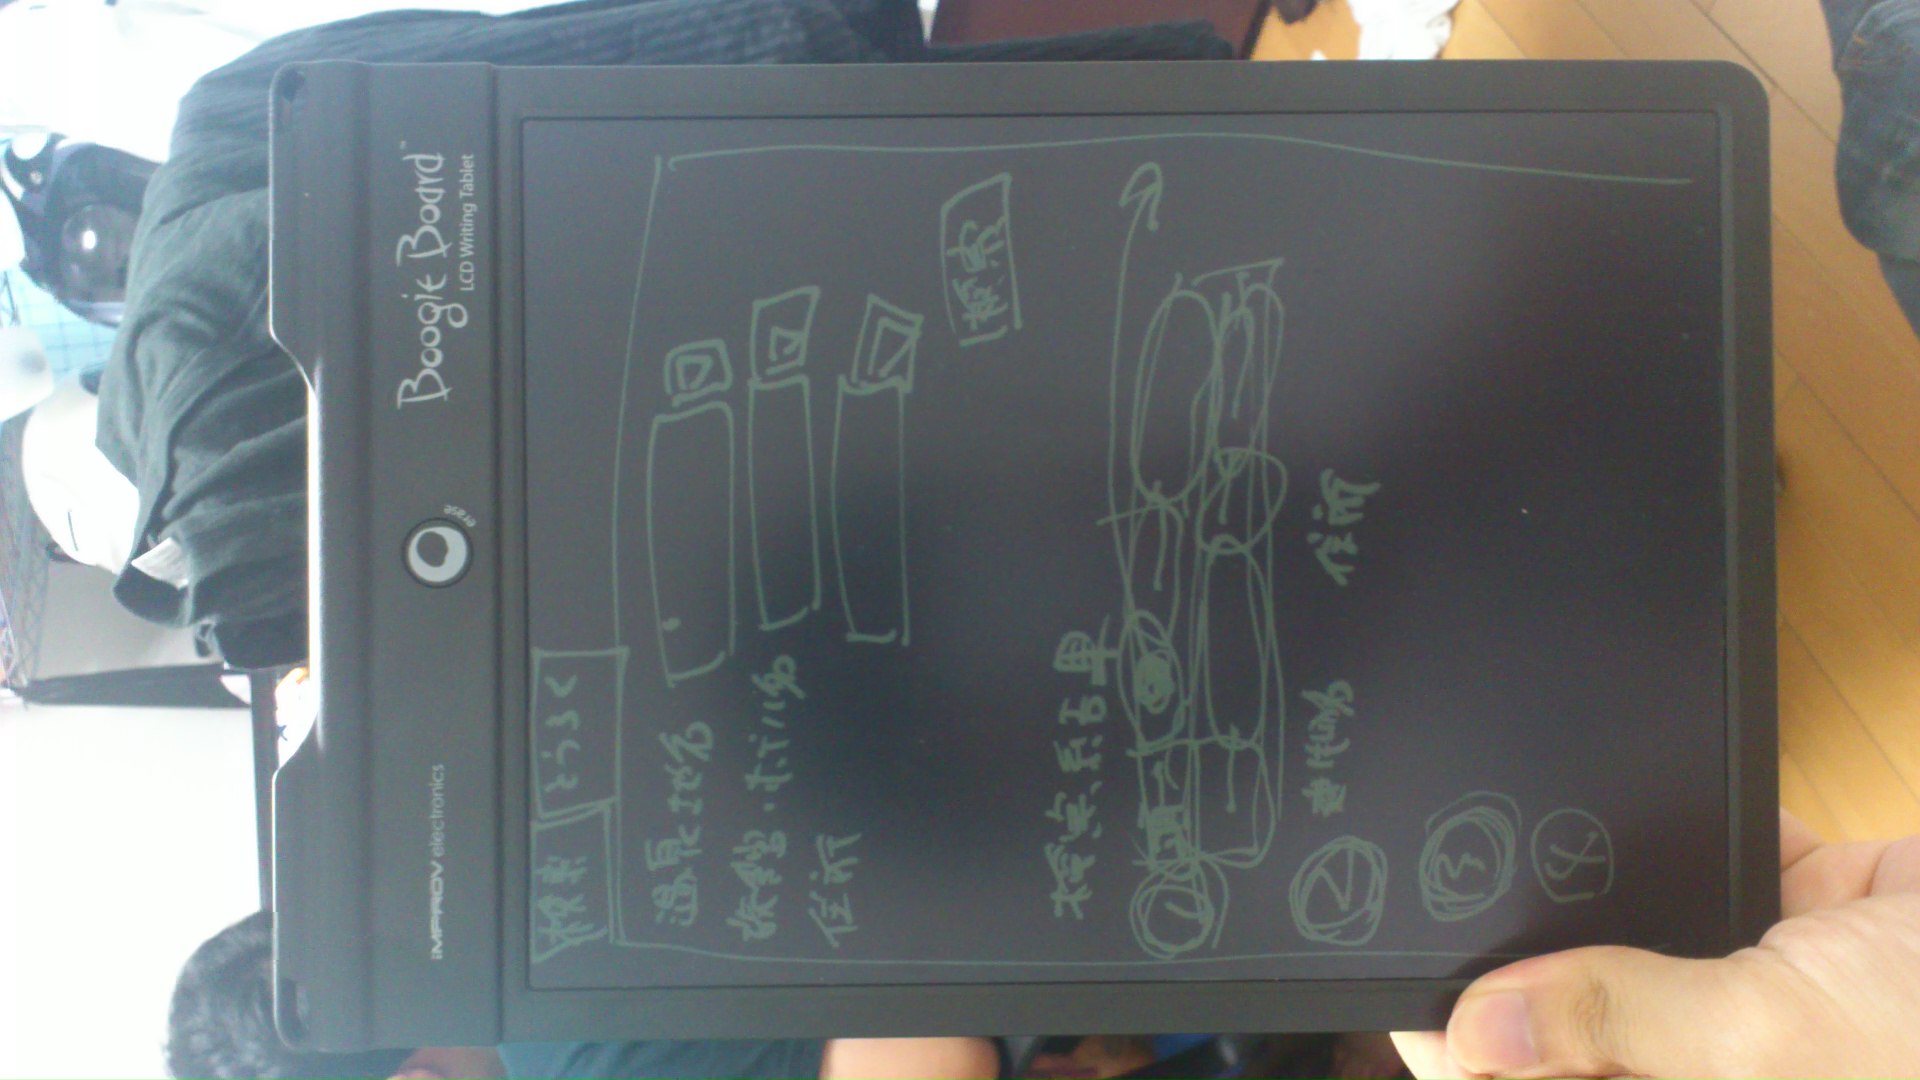 iMPROV electronics
erase
Boogie Board™
LCD Writing Tablet
検索 とうろく
温泉地名
旅館・ホテル名
住所
検索
検索結果
1
2 住所
3
4